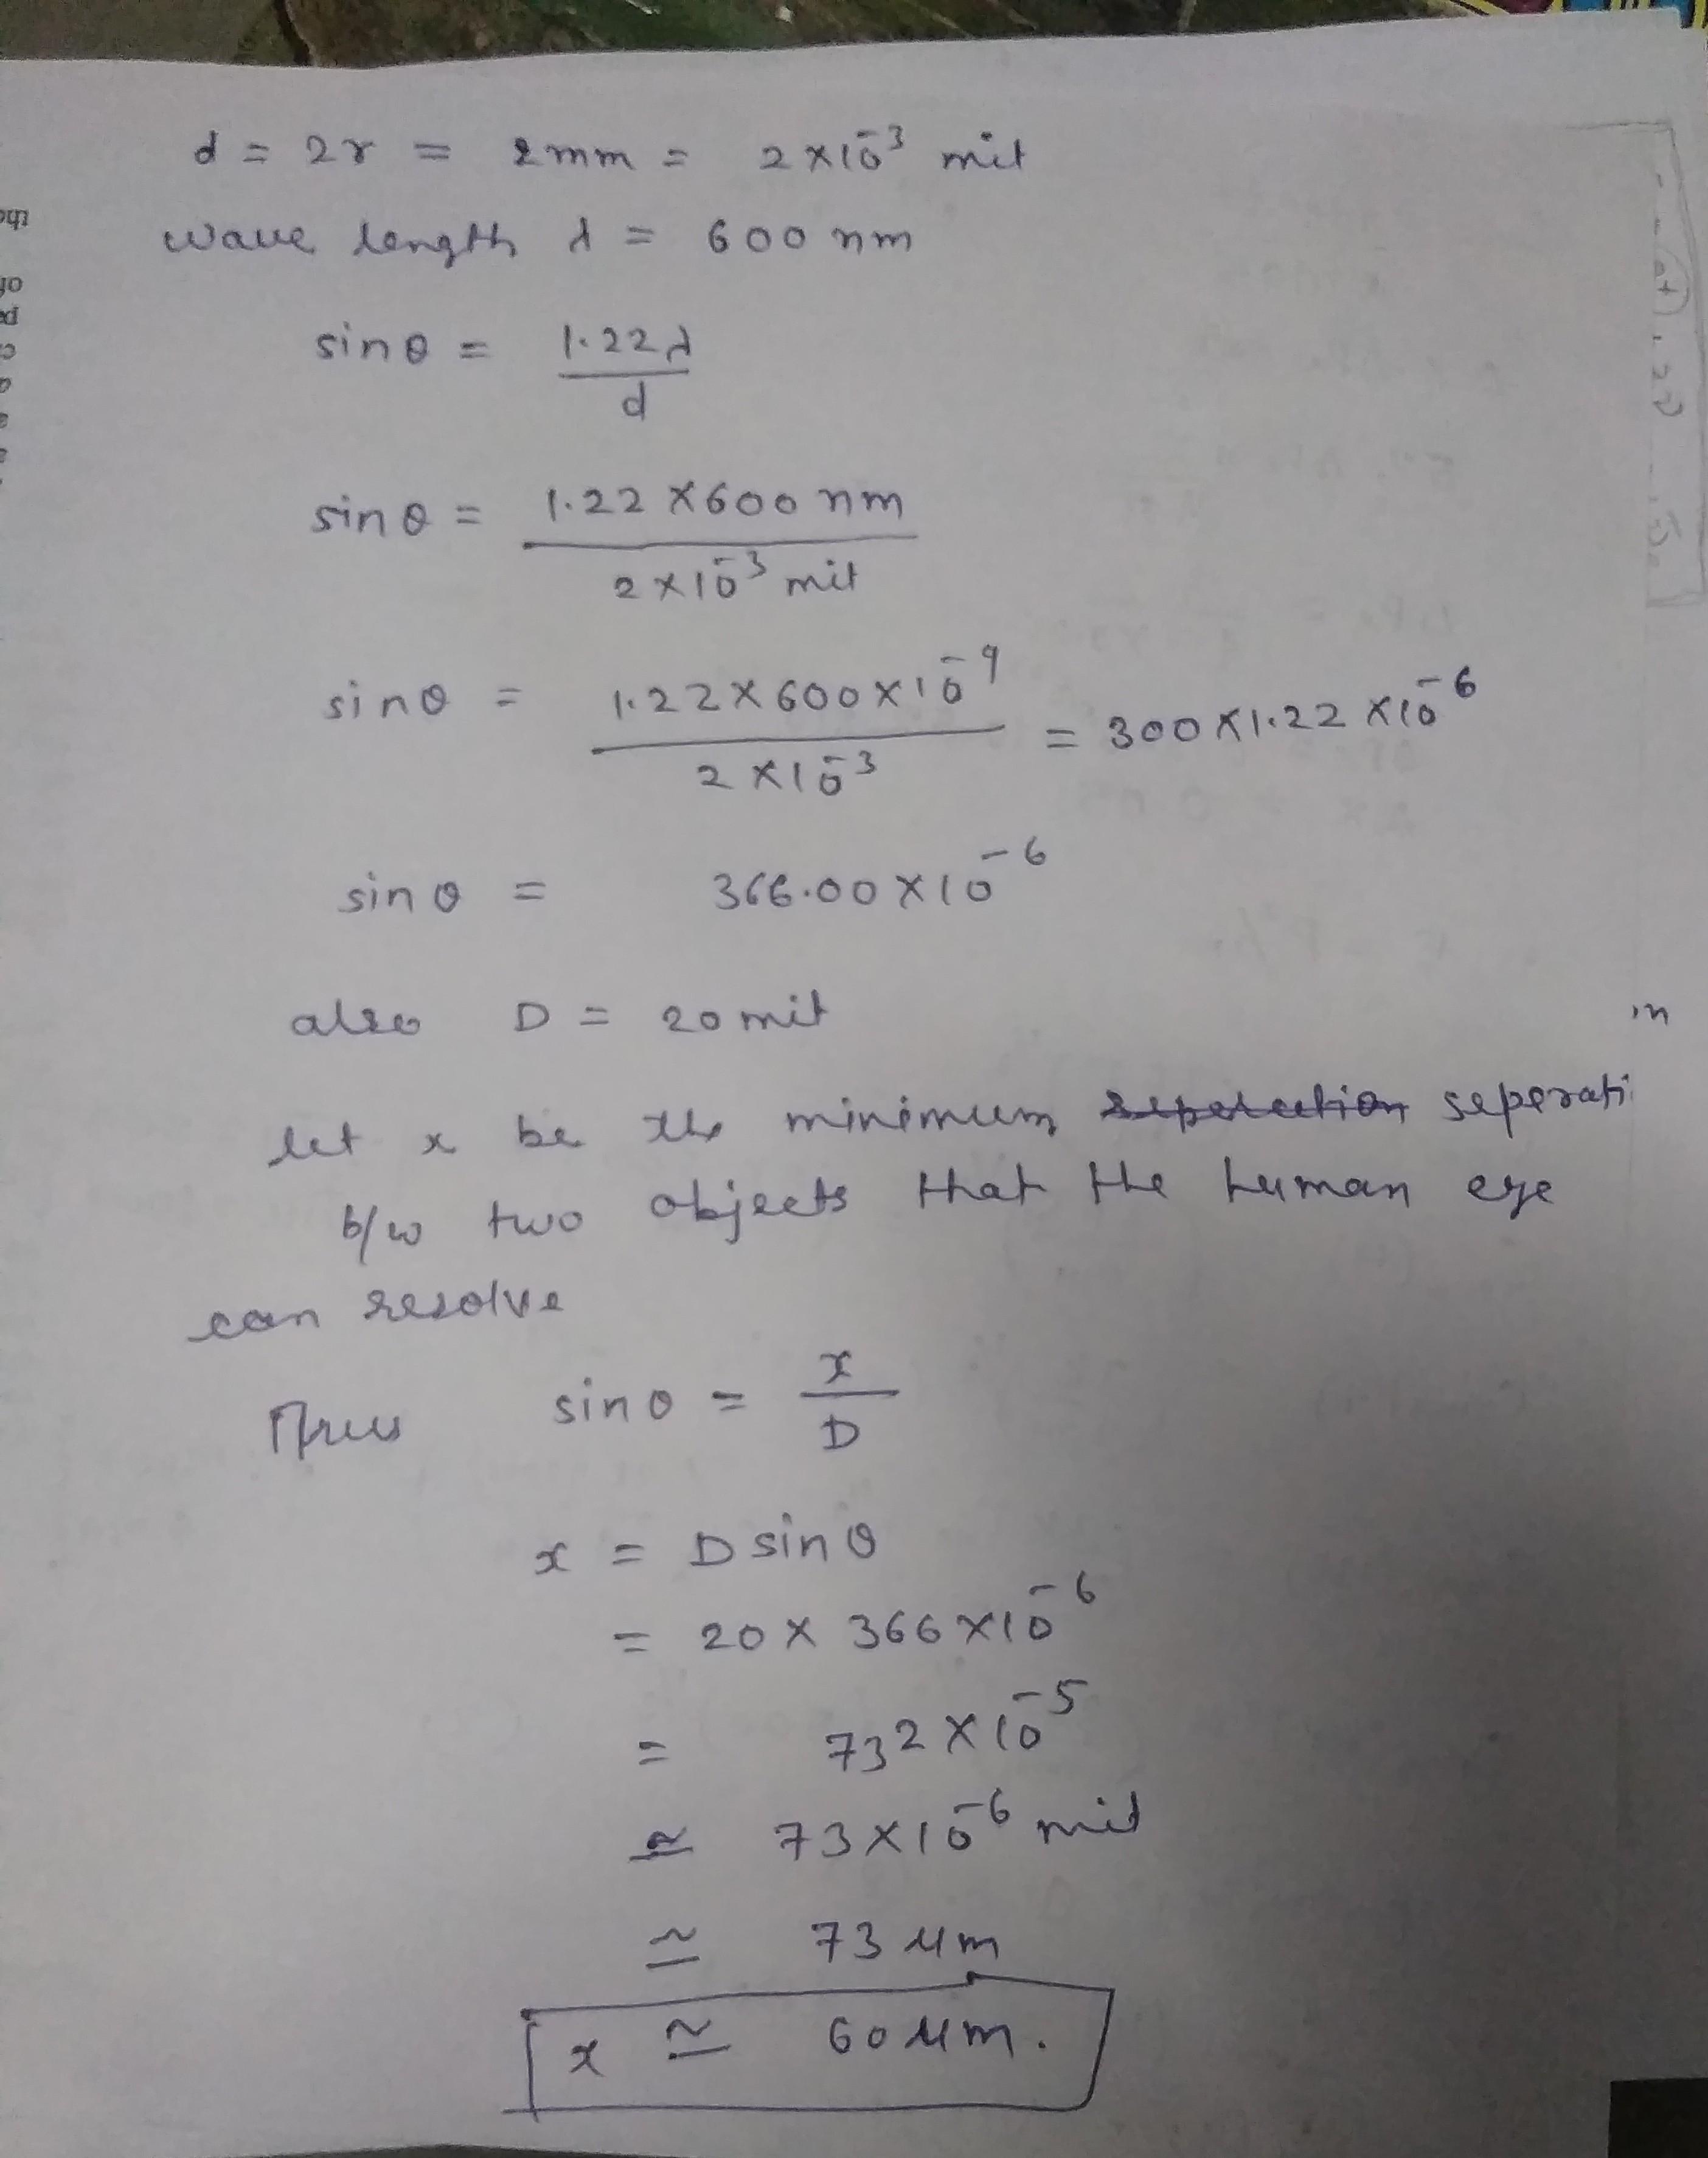 d = 2r = 2mm = 2×10⁻³ mit
wave length λ = 600 nm
sinθ = 1.22λ / d
sinθ = 1.22 × 600 nm / 2×10⁻³ mit
sinθ = 1.22 × 600 × 10⁻⁹ / 2×10⁻³ = 300 × 1.22 × 10⁻⁶
sinθ = 366.00 × 10⁻⁶
also D = 20 mit
in
let x be the minimum seperati
b/w two objects that the human eye
can resolve
Thus sinθ = x / D
x = D sinθ
= 20 × 366 × 10⁻⁶
= 732 × 10⁻⁵
≃ 73 × 10⁻⁶ mit
≃ 73 μm
x ≃ 60 μm.